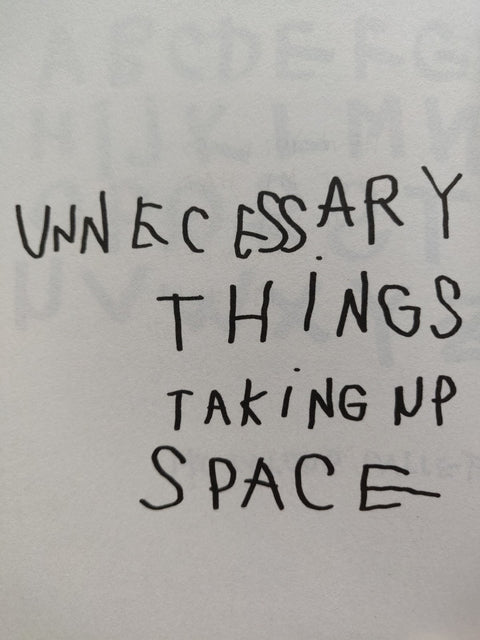 UNNECESSARY
THiNGS
TAKiNG UP
SPACE